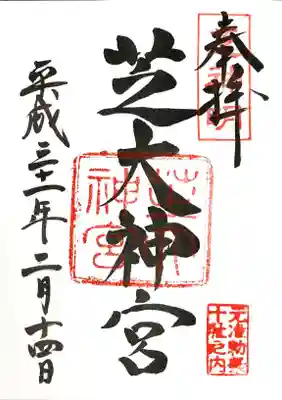 奉拝
芝大神宮
平成三十一年二月十四日
元准勅祭
十社之内
芝大
神宮